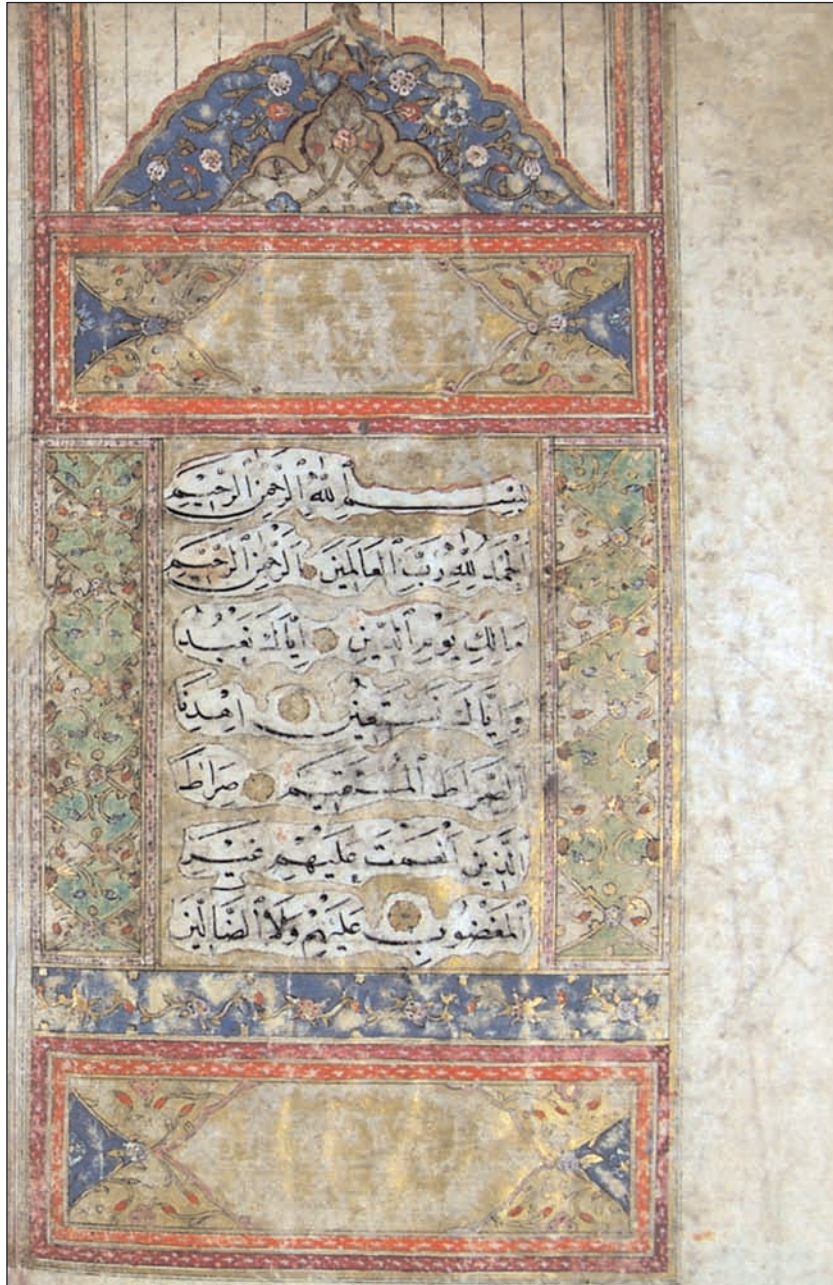 بِسْمِ ٱللّٰهِ ٱلرَّحْمٰنِ ٱلرَّحِيمِ
اَلْحَمْدُ لِلّٰهِ رَبِّ ٱلْعَالَمِينَ ۝ اَلرَّحْمٰنِ ٱلرَّحِيمِ
مَالِكِ يَوْمِ ٱلدِّينِ ۝ اِيَّاكَ نَعْبُدُ
وَاِيَّاكَ نَسْتَعِينُ ۝ اِهْدِنَا
ٱلصِّرَاطَ ٱلْمُسْتَقِيمَ ۝ صِرَاطَ
ٱلَّذِينَ اَنْعَمْتَ عَلَيْهِمْ غَيْرِ
ٱلْمَغْضُوبِ ۝ عَلَيْهِمْ وَلَا ٱلضَّالِّينَ